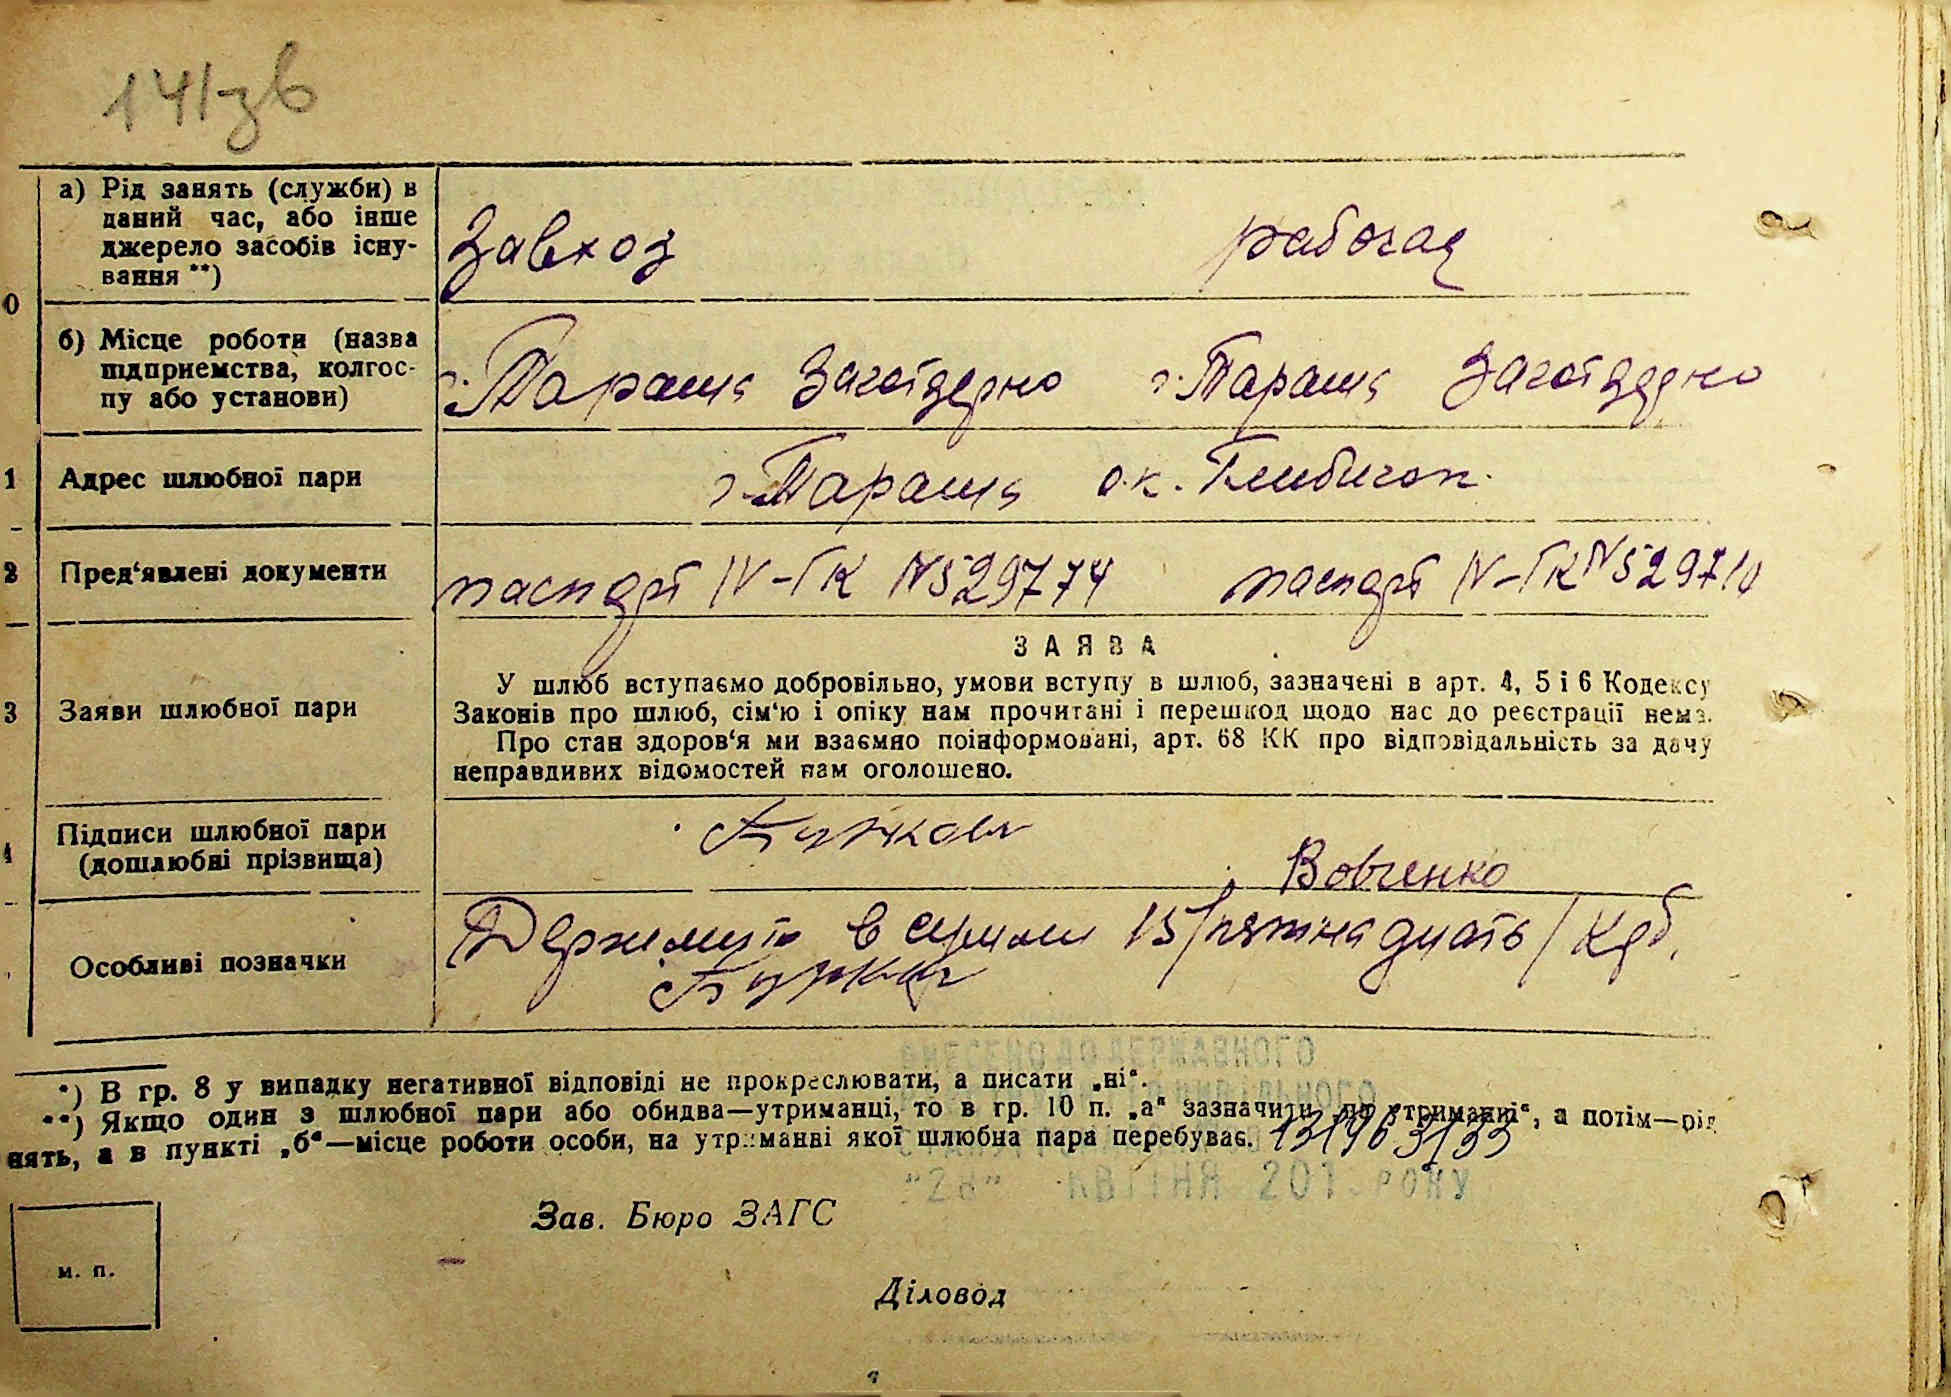 141зв
а) Рід занять (служби) в
даний час, або інше
джерело засобів існу-
вання **)
Завхоз рабочая
0
б) Місце роботи (назва
підприємства, колгос-
пу або установи)
г. Тараща Заготзерно г. Тараща Заготзерно
1 Адрес шлюбної пари
г. Тараща ок.
2 Пред‘явлені документи
паспорт IV-ГК N529774 паспорт IV-ГК N529710
ЗАЯВА
3 Заяви шлюбної пари
У шлюб вступаємо добровільно, умови вступу в шлюб, зазначені в арт. 4, 5 і 6 Кодексу
Законів про шлюб, сім‘ю і опіку нам прочитані і перешкод щодо нас до реєстрації нема.
Про стан здоров‘я ми взаємно поінформовані, арт. 68 КК про відповідальність за дачу
неправдивих відомостей нам оголошено.
4 Підписи шлюбної пари
(дошлюбні прізвища)
Вовченко
Особливі позначки
в сумме 15/пятнадцать/ крб.
*) В гр. 8 у випадку негативної відповіді не прокреслювати, а писати „ні“.
**) Якщо один з шлюбної пари або обидва—утриманці, то в гр. 10 п. „а“ зазначити „на утриманні“, а потім—рід
нять, а в пункті „б“—місце роботи особи, на утриманні якої шлюбна пара перебуває.
ВНЕСЕНО ДО ДЕРЖАВНОГО
ЦИВІЛЬНОГО
"28" КВІТНЯ 201 РОКУ
Зав. Бюро ЗАГС
м. п.
Діловод